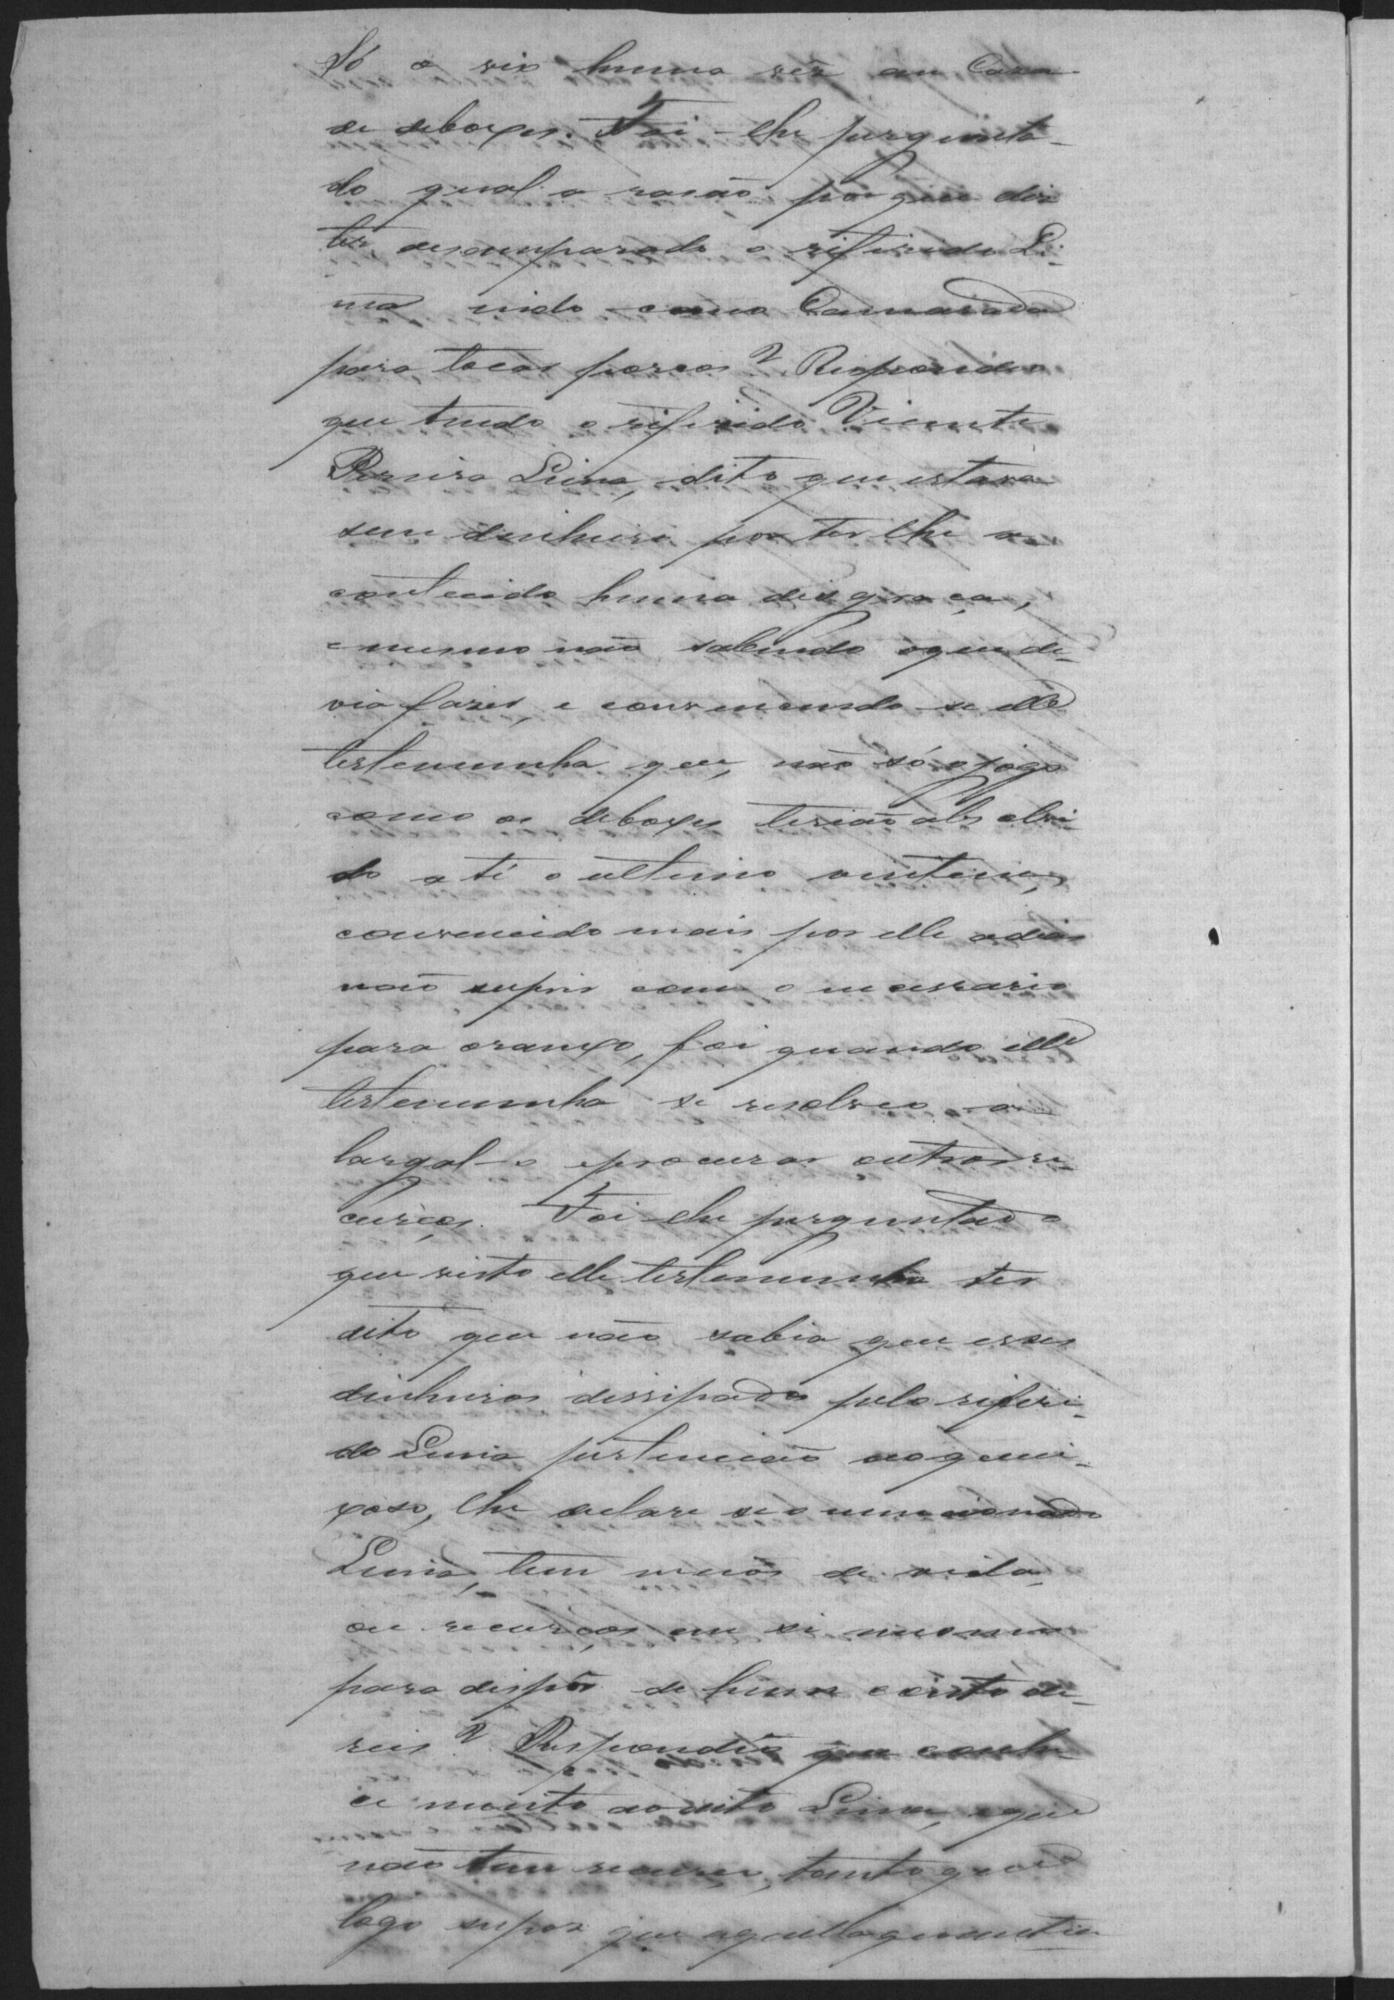 Só o vio huma vez em Casa
de deboxes. Foi-lhe pergunta-
do qual a rasão por que diz
ter desamparado o referido Li-
ma vindo como Camarada
para tocar porcos? Respondeo
que tendo o referido Vicente
Pereira Lima, dito que estava
sem dinheiro por ter lhe a-
contecido huma desgraça,
e mesmo não sabendo o que de-
via fazer, e convencendo-se elle
testemunha que, não só o jogo
como os deboxes terião absolvi-
do a té o ultimo vintem,
convencido mais por elle o dias
não suprir com o necessario
para oranxo, foi quando elle
testemunha se resolveo a
largal-o e procurar outros re-
curços. Foi-lhe perguntado
que visto elle testemunha ter
dito que não sabia que esses
dinheiros dissipados pelo referi-
do Lima pertencião ao quei-
xoso, lhe declare se o mencionado
Lima, tem meios de vida
ou recurços em si mesmo
para dispôr de hum conto de-
reis? Respondeo que conhe-
ce muito ao dito Lima, e que
não tem recurços, tanto que
logo supoz que aquella quantia